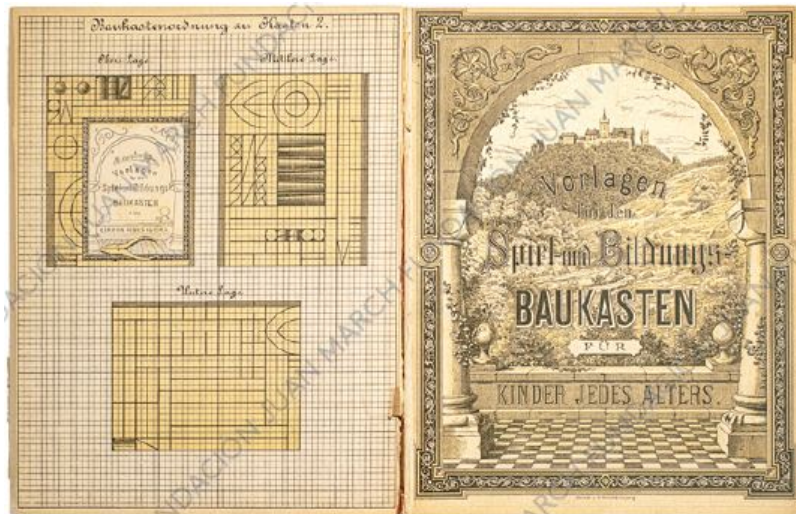 Baukastenordnung zu Kasten 2.
Obere Lage
Mittlere Lage.
Vorlagen
Spiel und Bildungs-
BAUKASTEN
KINDER JEDES ALTERS
Untere Lage
Vorlagen
für den
Spiel- und Bildungs-
BAUKASTEN
FÜR
KINDER JEDES ALTERS.
FUNDACION JUAN MARCH